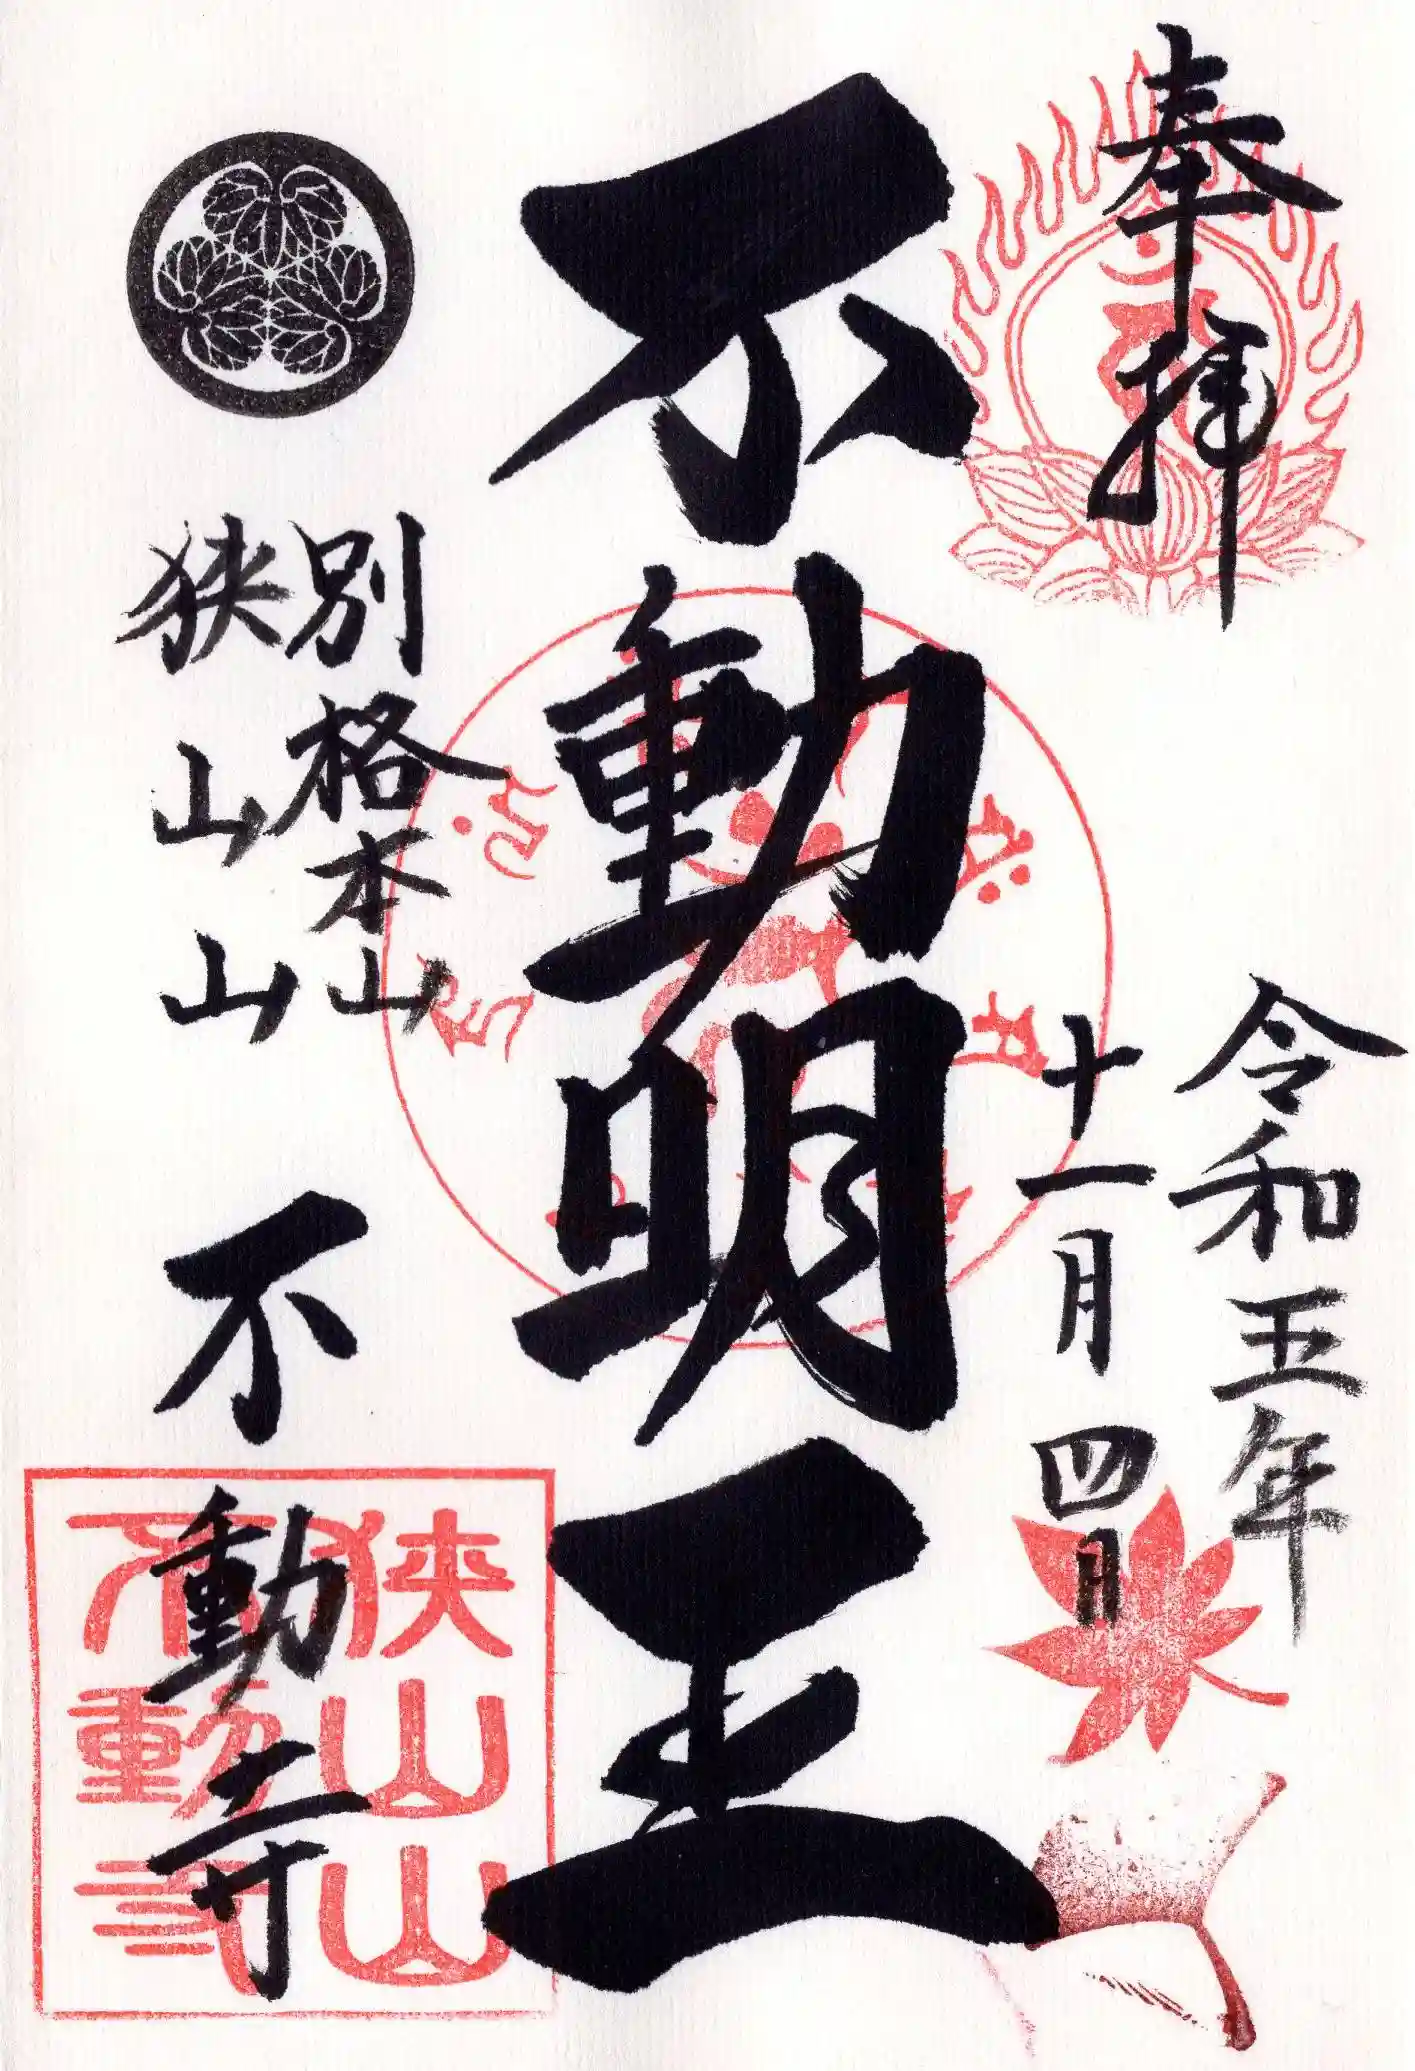 奉拝
令和五年
十一月四日
不動明王
別格本山
狭山山 不動寺
狭山山
不動寺